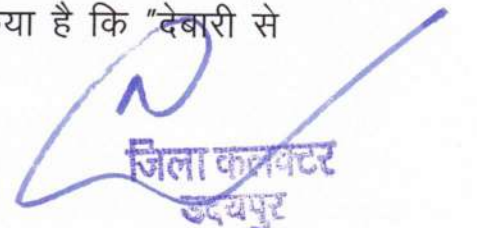 या है कि "देबारी से
जिला कलक्टर
उदयपुर